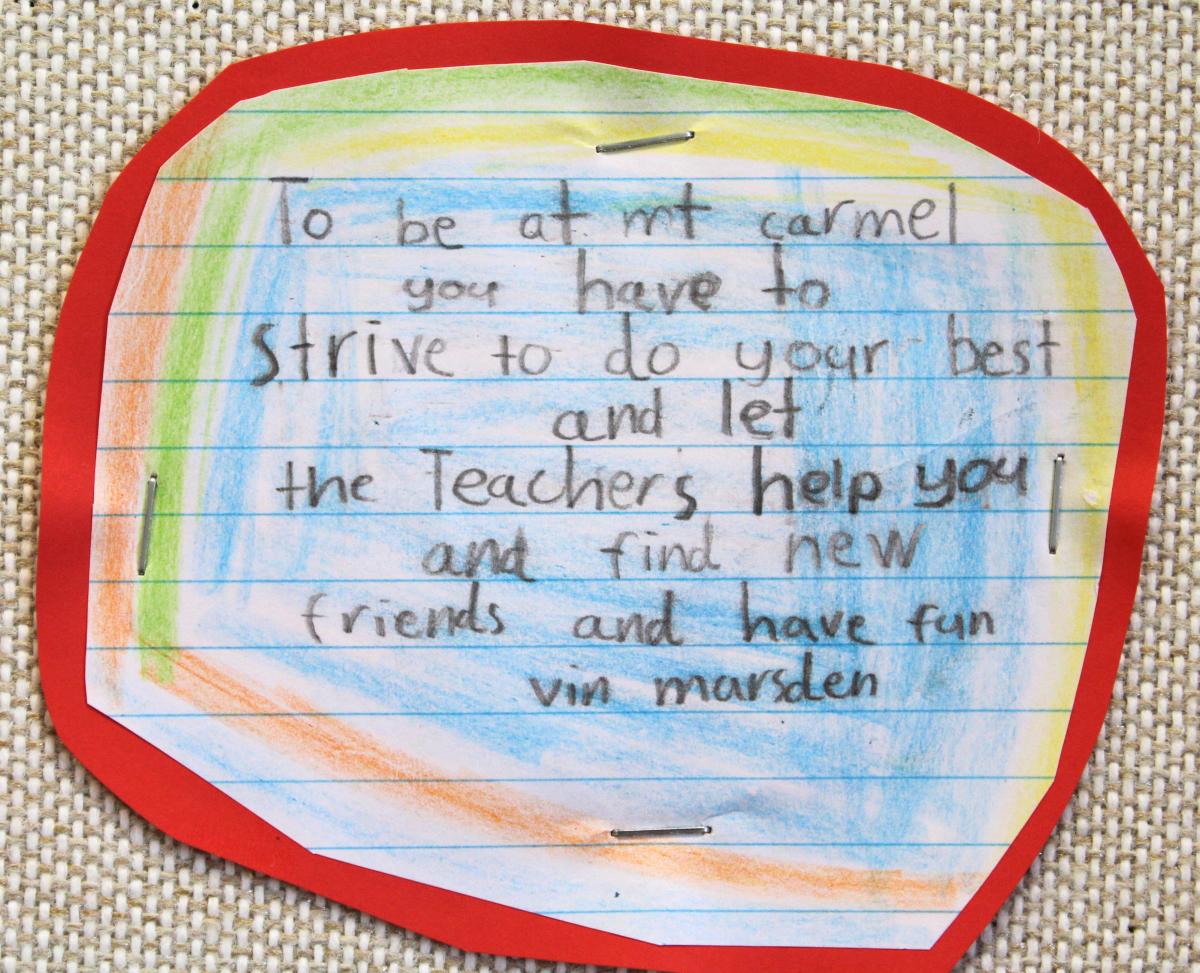 To be at mt carmel
you have to
strive to do your best
and let
the Teachers help you
and find new
friends and have fun
vin marsden